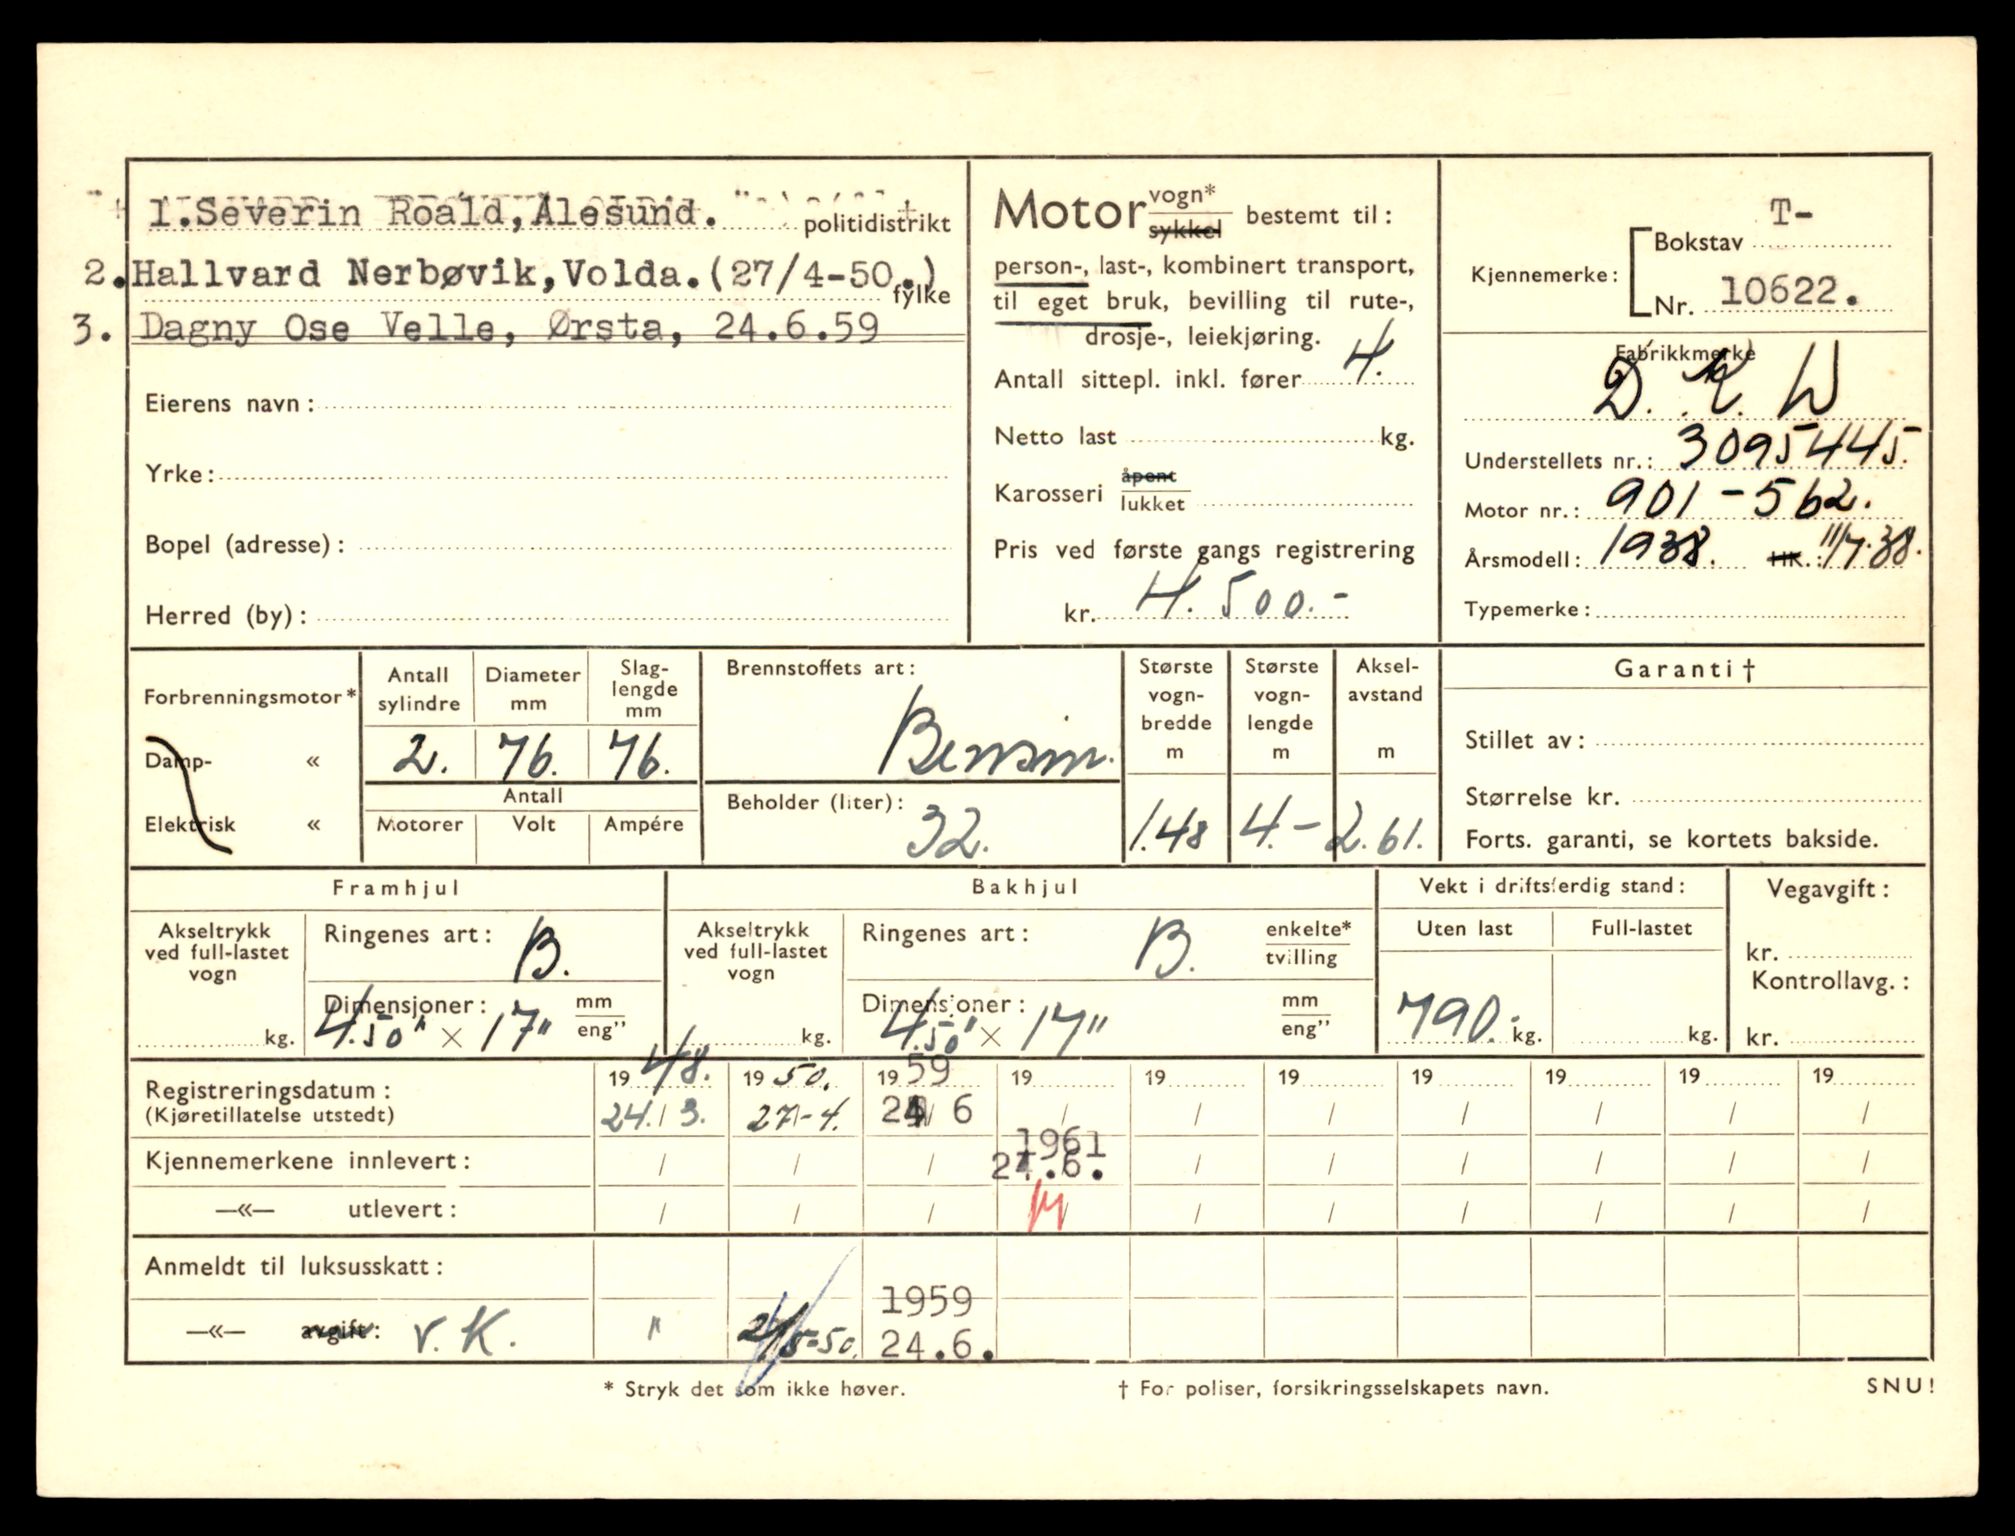 1.Severin Roald,Ålesund. politidistrikt
2.Hallvard Nerbøvik,Volda.(27/4-50.) fylke
3. Dagny Ose Velle, Ørsta, 24.6.59
Eierens navn:
Yrke:
Bopel (adresse):
Herred (by):
Motor vogn* sykkel bestemt til:
person-, last-, kombinert transport,
til eget bruk, bevilling til rute-,
drosje-, leiekjøring.
Antall sittepl. inkl. fører 4.
Netto last kg.
Karosseri åpent lukket
Pris ved første gangs registrering
kr. 4.500.-
Kjennemerke: Bokstav T-
Nr. 10622.
Fabrikkmerke
D. K. W
Understellets nr.: 3095445.
Motor nr.: 901-562.
Årsmodell: 1938. HK.: 11/7.38.
Typemerke:
Forbrenningsmotor*
Damp- «
Elektrisk «
Antall sylindre
Diameter mm
Slag-lengde mm
2. 76. 76.
Antall
Motorer Volt Ampére
Brennstoffets art:
Bensin.
Beholder (liter):
32.
Største vogn-bredde m
Største vogn-lengde m
Aksel-avstand m
1.48 4.- 2.61.
Garanti†
Stillet av:
Størrelse kr.
Forts. garanti, se kortets bakside.
Framhjul
Akseltrykk ved full-lastet vogn
kg.
Ringenes art: B.
Dimensjoner: mm eng"
4.50" × 17"
Bakhjul
Akseltrykk ved full-lastet vogn
kg.
Ringenes art: B. enkelte* tvilling
Dimensjoner: mm eng"
4.50" × 17"
Vekt i driftsferdig stand:
Uten last Full-lastet
790.- kg. kg.
Vegavgift:
kr.
Kontrollavg.:
kr.
Registreringsdatum: 1948. 1950. 1959 19 19 19 19 19 19 19
(Kjøretillatelse utstedt) 24./3. 27/-4. 24/ 6 / / / / / / /
Kjennemerkene innlevert: / / / 1961 / / / / / /
.6.
—«— utlevert: / / / / / / / / / /
Anmeldt til luksusskatt:
1959
—«— avgift: V. K. " /5-50. 24.6.
* Stryk det som ikke høver.
† For poliser, forsikringsselskapets navn.
SNU!